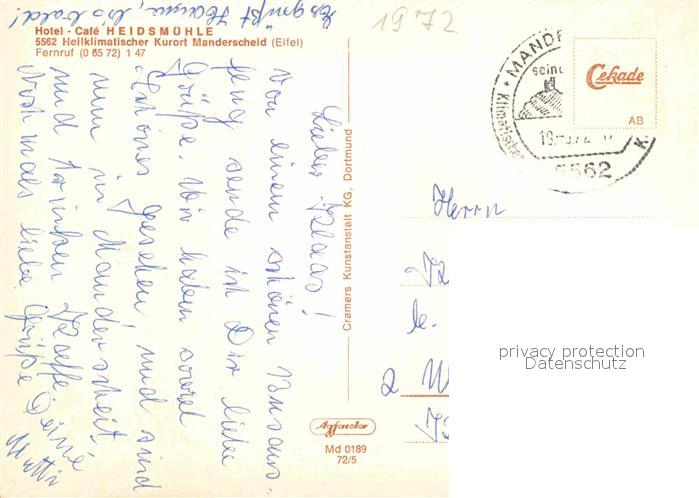 Es grüßt Hanna, bis bald!
1972
Hotel - Café HEIDSMÜHLE
5562 Heilklimatischer Kurort Manderscheid (Eifel)
Fernruf (0 65 72) 1 47
Lieber Klaas!
Von einem schönen Busaus-
flug sende ich Dir liebe
Grüße. Wir haben soviel
Schönes gesehen und sind
nun in Manderscheid,
und trinken Kaffe.
Nochmals liebe Grüße Deine
Mutti
Cramers Kunstanstalt KG, Dortmund
Md 0189
72/5
MANDE
Klimatischer
K
5562
Cekade
AB
Herrn
privacy protection
Datenschutz